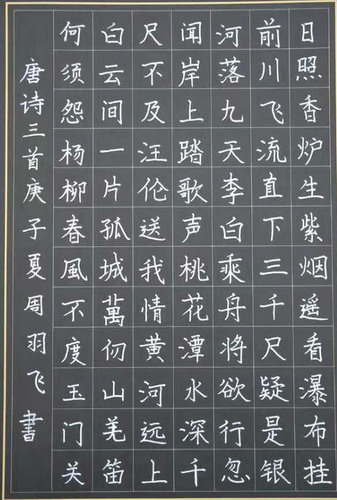 日照香炉生紫烟遥看瀑布挂
前川飞流直下三千尺疑是银
河落九天李白乘舟将欲行忽
闻岸上踏歌声桃花潭水深千
尺不及汪伦送我情黄河远上
白云间一片孤城萬仞山羌笛
何须怨杨柳春風不度玉门关
唐诗三首庚子夏周羽飞書